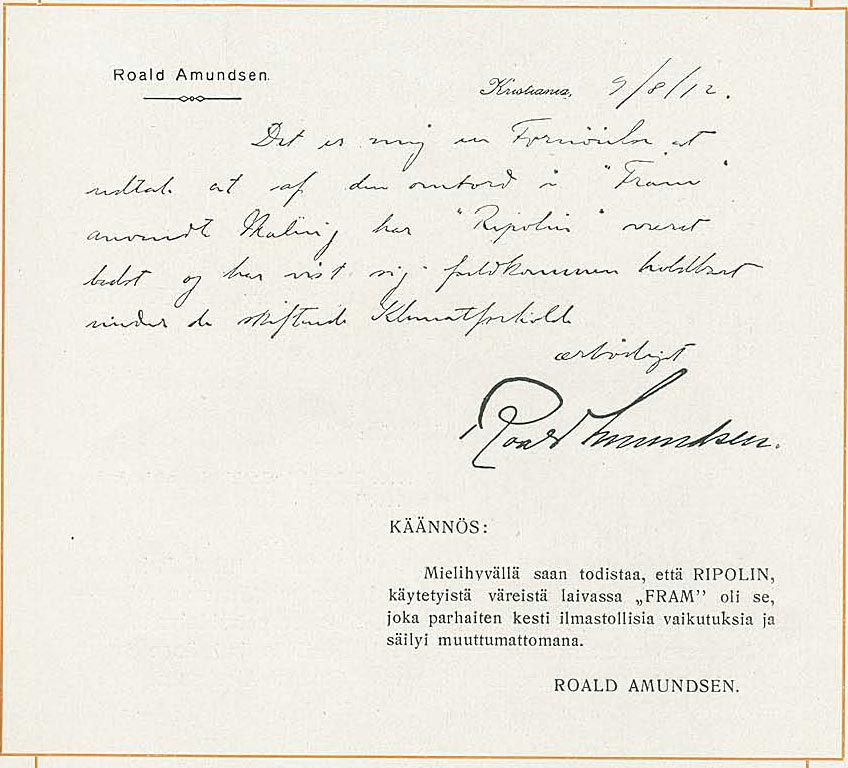 Roald Amundsen.
Kristiania, 9/8/12.
Det er mig en Fornöielse at
udtale at af den ombord i "Fram"
anvendt Maling har "Ripolin" været
bedst og har vist sig fuldkommen holdbart
under de skiftende Klimatforholde
ærbödigst
Roald Amundsen.
KÄÄNNÖS:
Mielihyvällä saan todistaa, että RIPOLIN,
käytetyistä väreistä laivassa „FRAM” oli se,
joka parhaiten kesti ilmastollisia vaikutuksia ja
säilyi muuttumattomana.
ROALD AMUNDSEN.